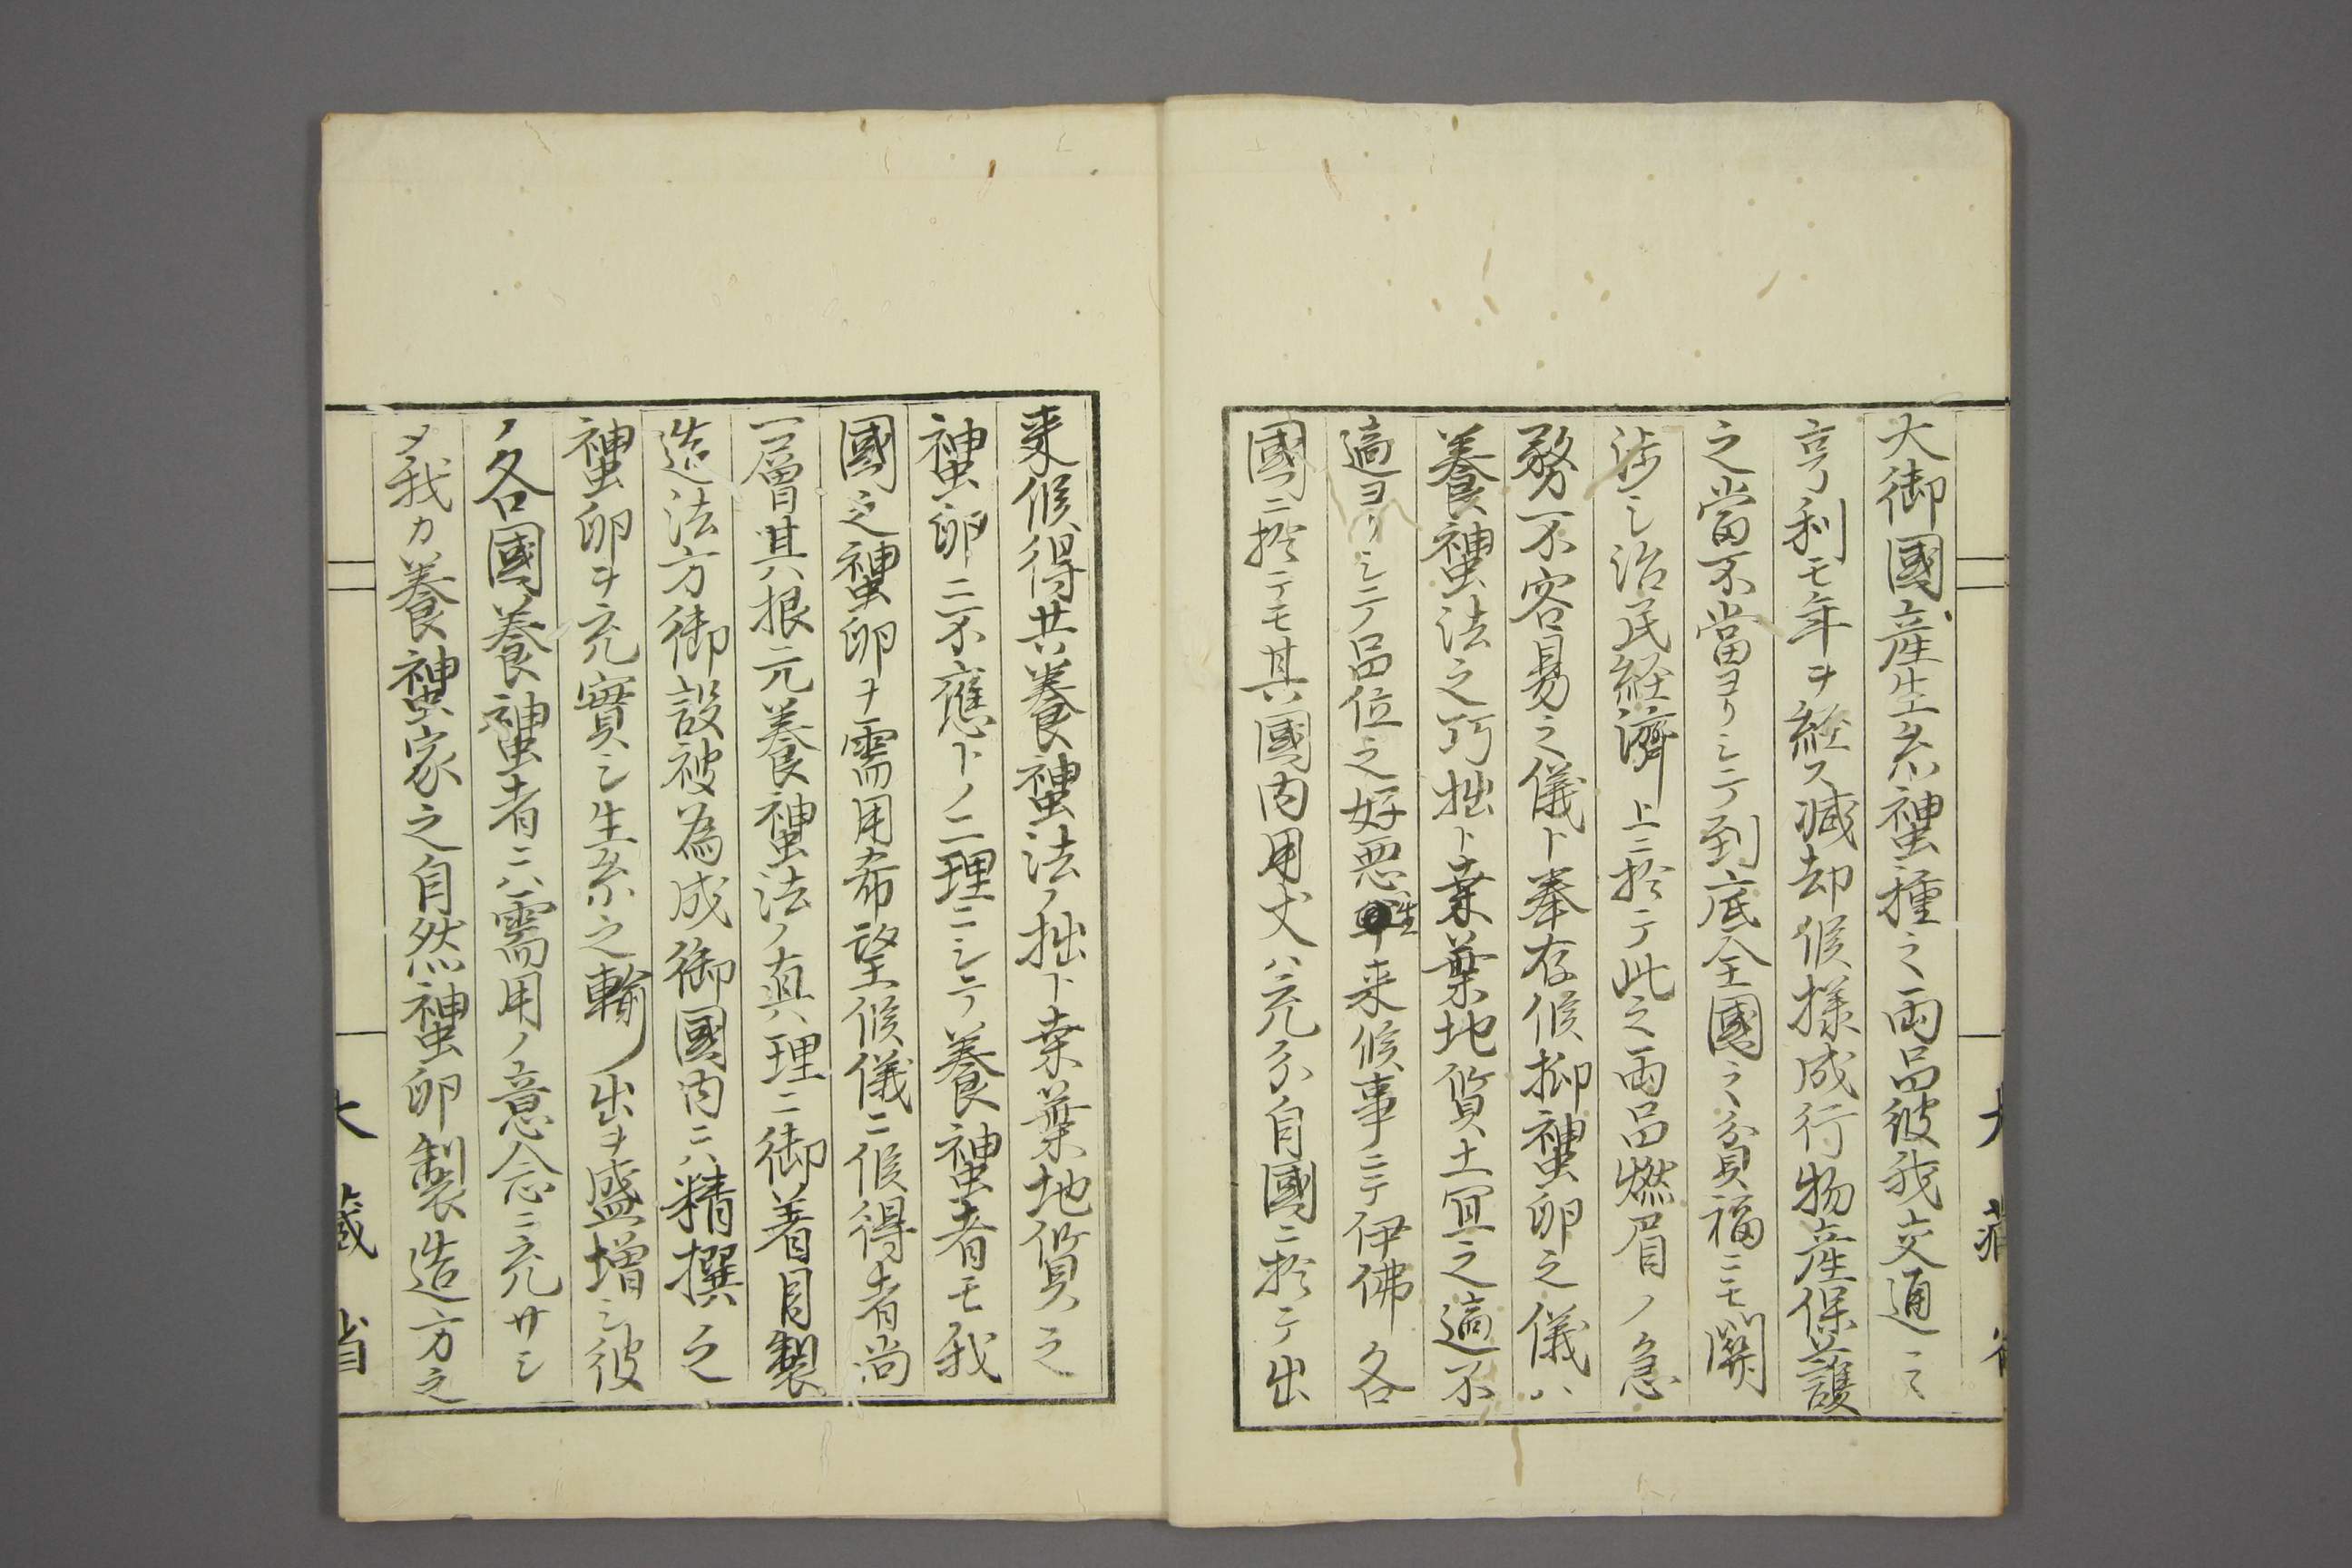 大御國産生糸蠶種之両品彼我交通之
享利モ年ヲ経ス减却候様成行物産保護
之當不當ヨリシテ到底全國之貧福ニモ關
渉シ治民経濟上ニ於テ此之両品燃眉ノ急
務不容易之儀ト奉存候抑蠶卵之儀ハ
養蠶法之巧拙ト桒葉地質土冝之適不
適ヨリシテ品位之好悪生来候事ニテ伊佛各
國ニ於テモ其國内用丈ハ充分自國ニ於テ出
来候得共養蠶法ノ拙ト桒葉地質之
蠶卵ニ不應トノ二理ニシテ養蠶者モ我
國之蠶卵ヲ需用希望候儀ニ候得者尚
一層其根元養蠶法ノ真理ニ御着目製
造法方御設被為成御國内ニハ精撰之
蠶卵ヲ充實シ生糸之輸出ヲ盛増シ彼
ノ各國養蠶者ニハ需用ノ意念ニ充サシ
メ我カ養蠶家之自然蠶卵製造方之
大藏省